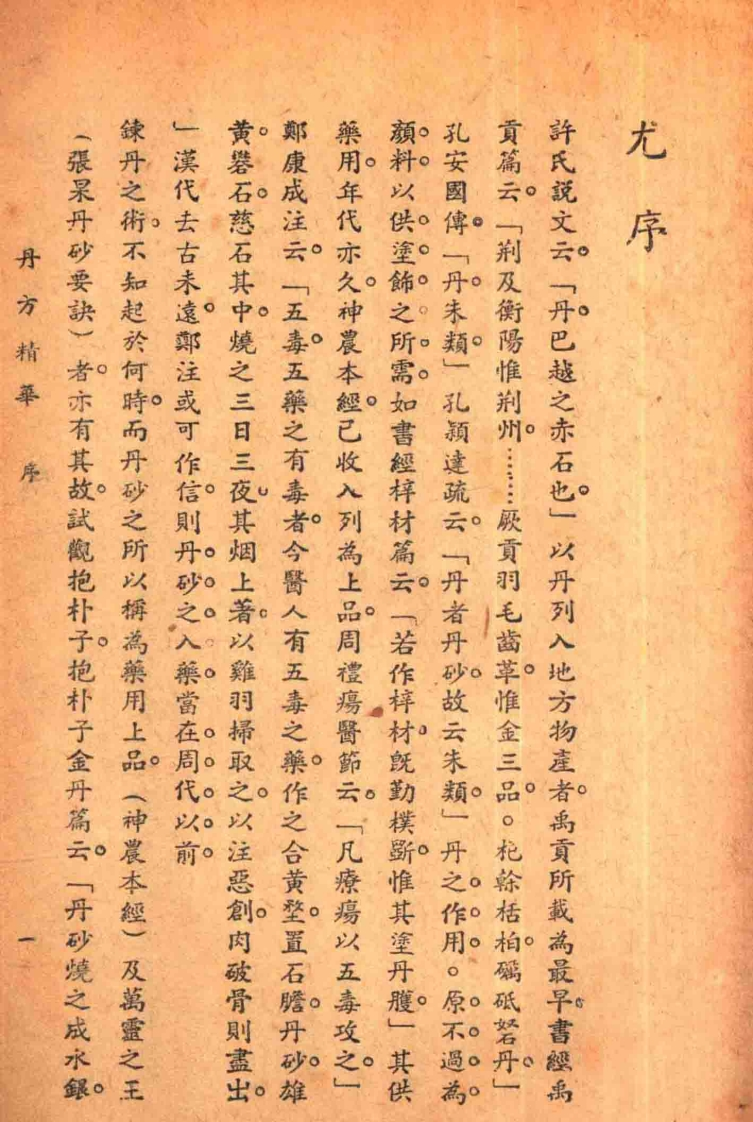 尤序
許氏説文云。「丹。巴越之赤石也。」以丹列入地方物產者。禹貢所載為最早。書經禹
貢篇云。「荆及衡陽惟荆州。……厥貢羽毛齒革。惟金三品。。杶榦栝柏。礪砥砮丹。」
孔安國傳。「丹朱類。」孔颖達疏云。「丹者丹砂。故云朱類。」丹之。作。用。。原。不。過。為。
顏。料。以。供。塗。飾。之。所。需。如書經梓材篇云。「若作梓材。既勤樸斲。惟其塗丹雘。」其供
藥用。年代亦久。神農本經。已收入列為上品。周禮瘍醫節云。「凡療瘍以五毒攻之。」
鄭康成注云。「五毒。五藥之有毒者。今醫人有五毒之藥。作之合黄堥。置石膽。丹砂。雄
黄。礜石。慈石其中。燒之三日三夜。其烟上著。以雞羽掃取之。以注惡創。肉破骨則盡出。
」漢代去古未遠。鄭注或可作信。則丹。砂。之。入。藥。當在。周。代。以。前。
鍊丹之術。不知起於何時。而丹砂之所以稱為藥用上品。（神農本經）及萬靈之王
（張杲丹砂要訣）者。亦有其故。試觀抱朴子。抱朴子金丹篇云。「丹砂燒之成水銀。
丹方精華　序　一